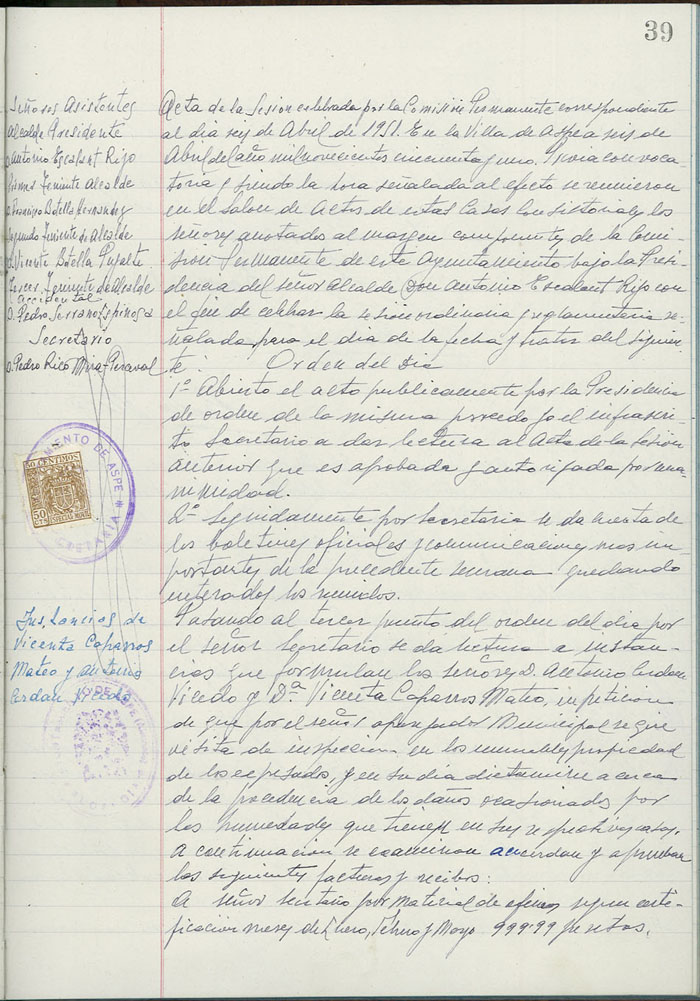 39
Señores Asistentes
Alcalde Presidente
D. Antonio Escalant Rijo
Primer Teniente Alcalde
D. Francisco Botella Hernandez
Segundo Teniente de Alcalde
D. Vicente Botella Pujalte
Tercer Teniente de Alcalde
accidental
D. Pedro Serrano Espinosa
Secretario
D. Pedro Rico Mira-Perceval
Acta de la Sesion celebrada por la Comisión Permanente correspondiente
al dia seis de Abril de 1951. En la Villa de Aspe a seis de
Abril del año mil novecientos cincuenta y uno. Previa convoca
toria y siendo la hora señalada al efecto se reunieron
en el Salon de Actos de estas Casas Consistoriales los
señores anotados al margen componentes de la Comi
sion Permanente de este Ayuntamiento bajo la Presi
dencia del señor Alcalde Don Antonio Escalant Rijo con
el fin de celebrar la sesion ordinaria y reglamentaria se
ñalada para el dia de la fecha y tratar del siguien
te: Orden del Dia
1º Abierto el acto publicamente por la Presidencia
de orden de la misma procedo yo el infrascri
to Secretario a dar lectura al Acta de la Sesion
anterior que es aprobada y autorizada por una
nimidad.
2º Seguidamente por Secretaria se da cuenta de
los boletines oficiales y comunicaciones mas im
portantes de la precedente semana quedando
enterados los reunidos.
Pasando al tercer punto del orden del dia por
el señor Secretario se da lectura a instan
cias que formulan los señores D. Antonio Cerdan
Vicedo y Dª Vicenta Caparros Mateo, en peticion
de que por el señor aparejador Municipal se gire
visita de inspeccion en los inmuebles propiedad
de los expresados, y en su dia dictamine acerca
de la procedencia de los daños ocasionados por
las humedades que tienen en sus respectivas casas.
A continuacion se examinan acuerdan y aprueban
las siguientes facturas y recibos:
A señor secretario por material de oficina segun certi-
ficacion meses de Enero, Febrero y Mayo 999'99 pesetas.
Instancias de
Vicenta Caparros
Mateo y Antonio
Cerdan Vicedo
50 CENTIMOS
50
ESPECIAL MOVIL
DE ASPE